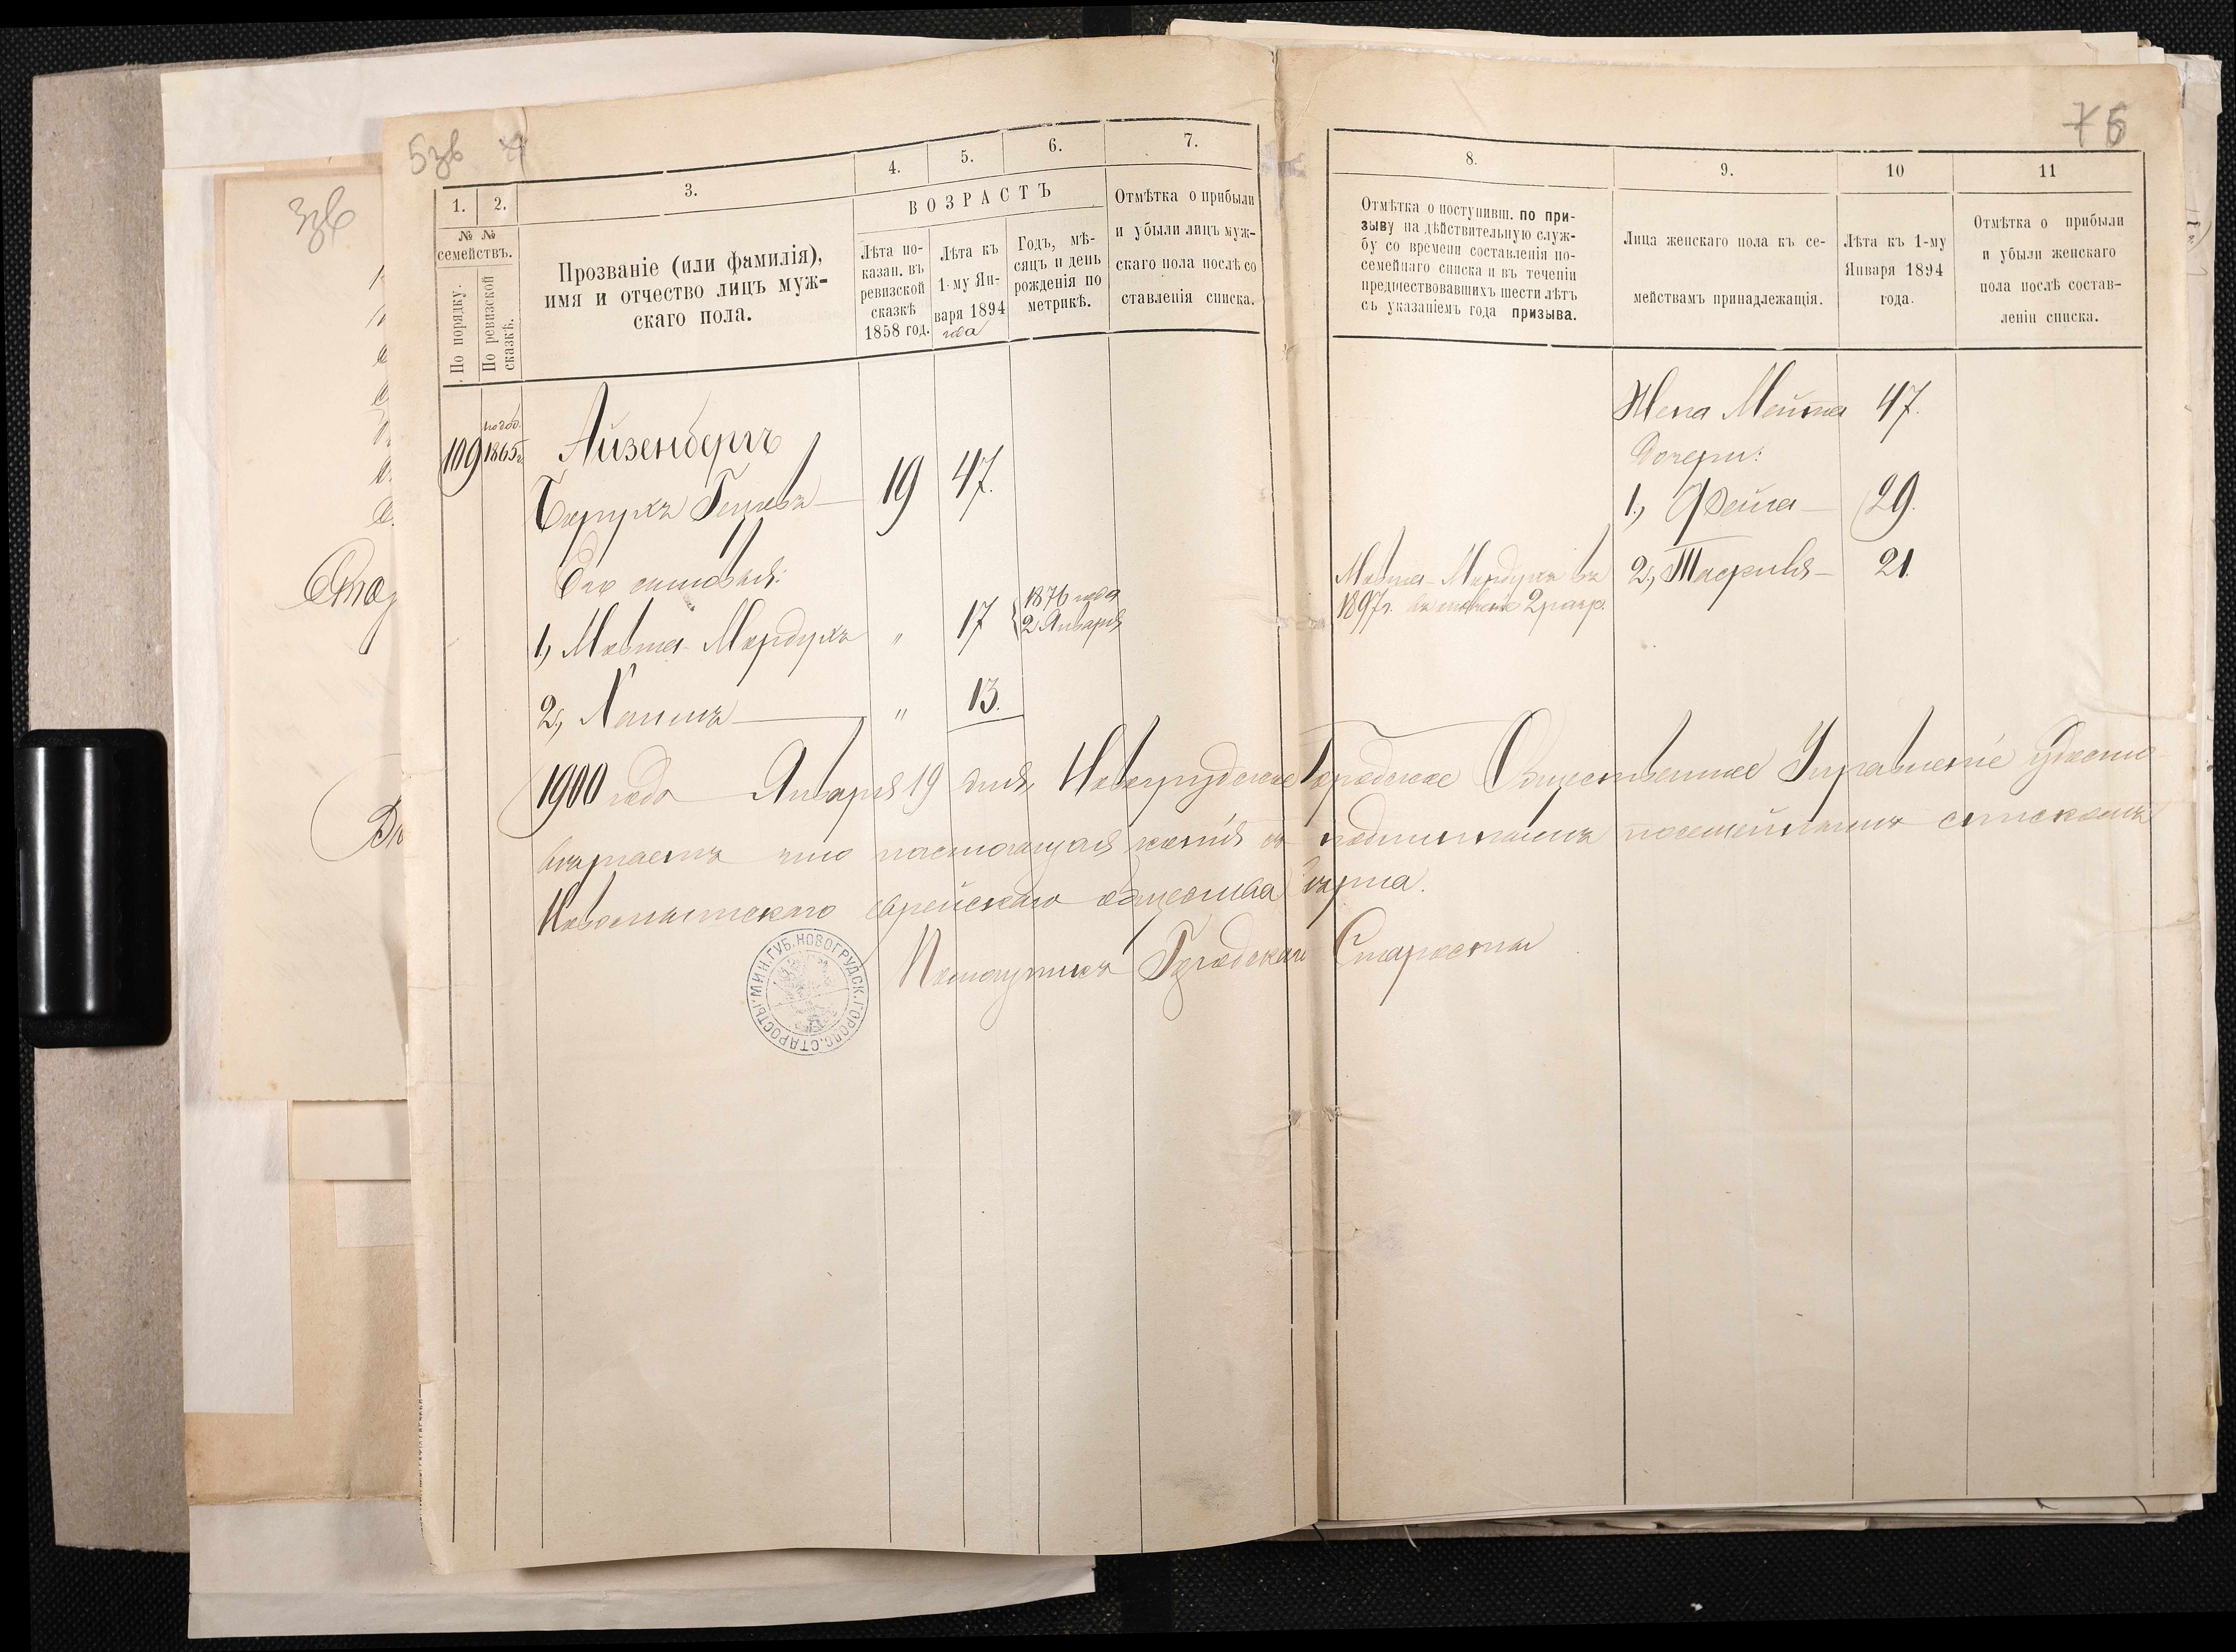 5зв
7
76
3в
1.
2.
3.
4.
5.
6.
7.
8.
9.
10
11
№ №
семействъ.
По порядку.
По ревизской
сказкѣ.
Прозваніе (или фамилія),
имя и отчество лицъ муж-
скаго пола.
ВОЗРАСТЪ
Лѣта по-
казан. въ
ревизской
сказкѣ
1858 год.
Лѣта къ
1-му Ян-
варя 1894
года
Годъ, мѣ-
сяцъ и день
рожденія по
метрикѣ.
Отмѣтка о прибыли
и убыли лицъ муж-
скаго пола послѣ со
ставленія списка.
Отмѣтка о поступивш. по при-
зыву на дѣйствительную служ-
бу со времени составленія по-
семейнаго списка и въ теченіи
предшествовавшихъ шести лѣтъ
съ указаніемъ года призыва.
Лица женскаго пола къ се-
мействамъ принадлежащія.
Лѣта къ 1-му
Января 1894
года.
Отмѣтка о прибыли
и убыли женскаго
пола послѣ состав-
леніи списка.
109
1865г.
Айзенбергъ
Борухъ 19 47.
Его сыновья:
1, Мовша-Мордухъ " 17 1876 года
2 Января
2, Хаимъ " 13.
Жена Мейта 47.
Дочери:
1, Фейга 29.
2, 21.
Мовша-Мордухъ въ
1897г. 2 разр.
1900 года Января 19 дня, Новогрудское Городское Общественное Управленіе удосто
вѣряетъ что настоящая копія съ подлиннымъ посемейнымъ спискомъ
еврейскаго общества вѣрна.
Помощникъ Городскаго Старосты
МИН.ГУБ.НОВОГРУДСК.ГОРОДС.СТАРОСТЫ
Ста